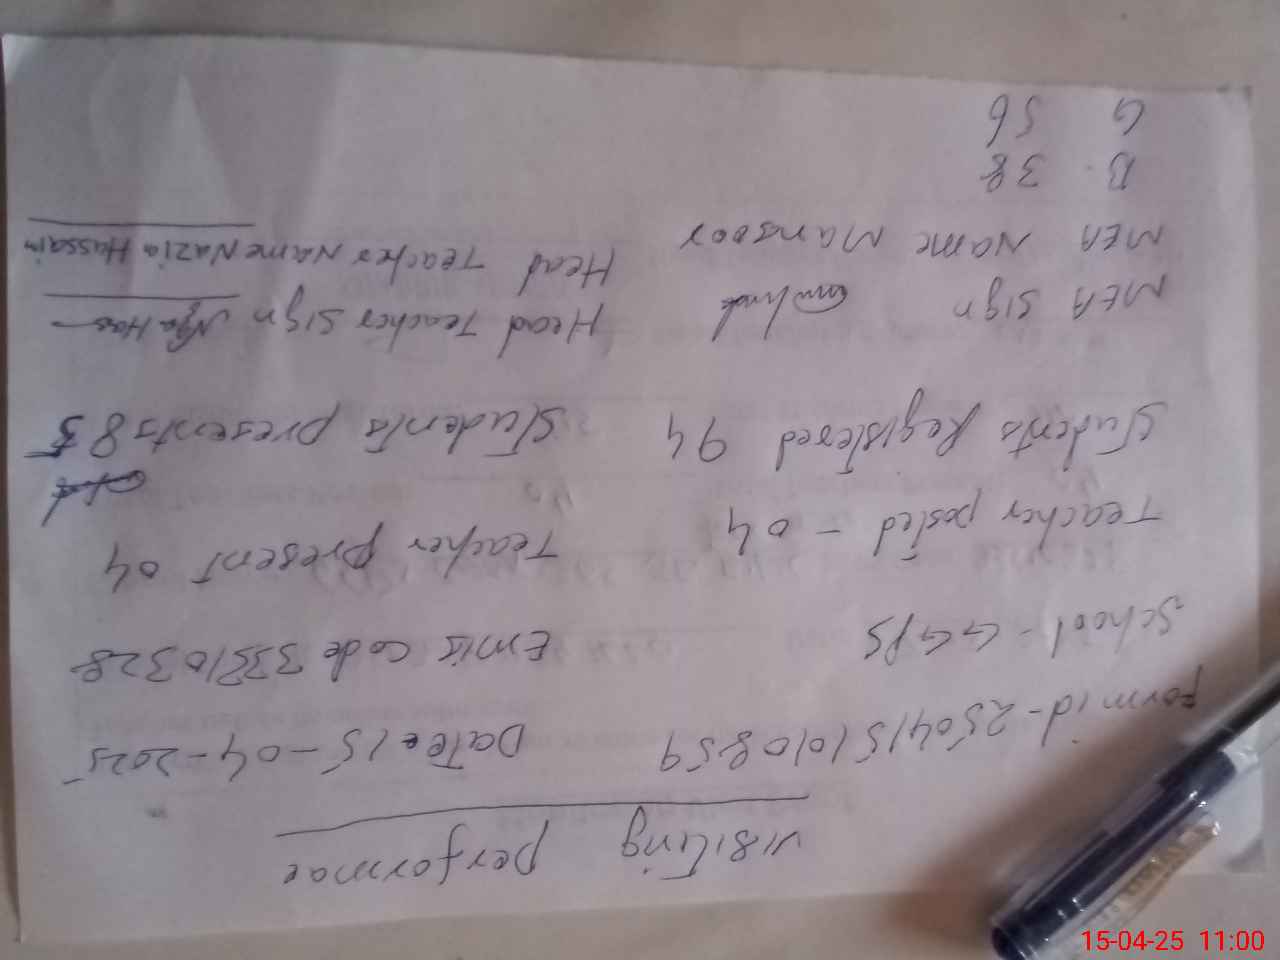 visiting performae
Form id - 2504151010859 Date 15-04-2025
School - GGPS Emis code 33310328
Teacher posted - 04 Teacher present 04
Students Registered 94 Students presents 85
MEA Sign Head Teacher Sign
MEA Name Mansoor Head Teacher Name Nazia Hussain
B. 38
G 56
15-04-25 11:00